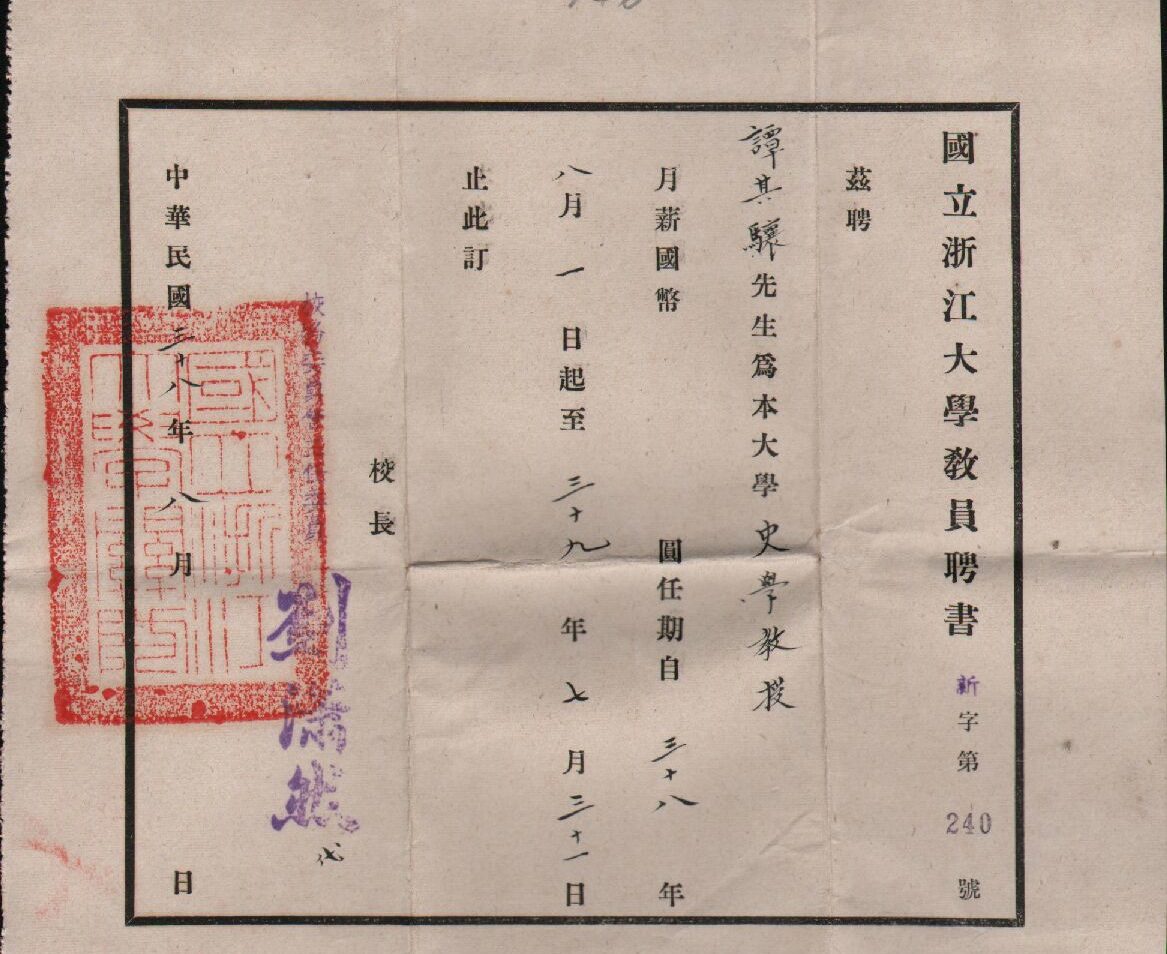 國立浙江大學教員聘書 新字第240號
茲聘
譚其驤先生為本大學史學教授
月薪國幣 圓任期自三十八年
八月一日起至三十九年七月三十一日
止此訂
校長
劉瀟然代
中華民國三十八年八月 日
國立浙江
大學關防